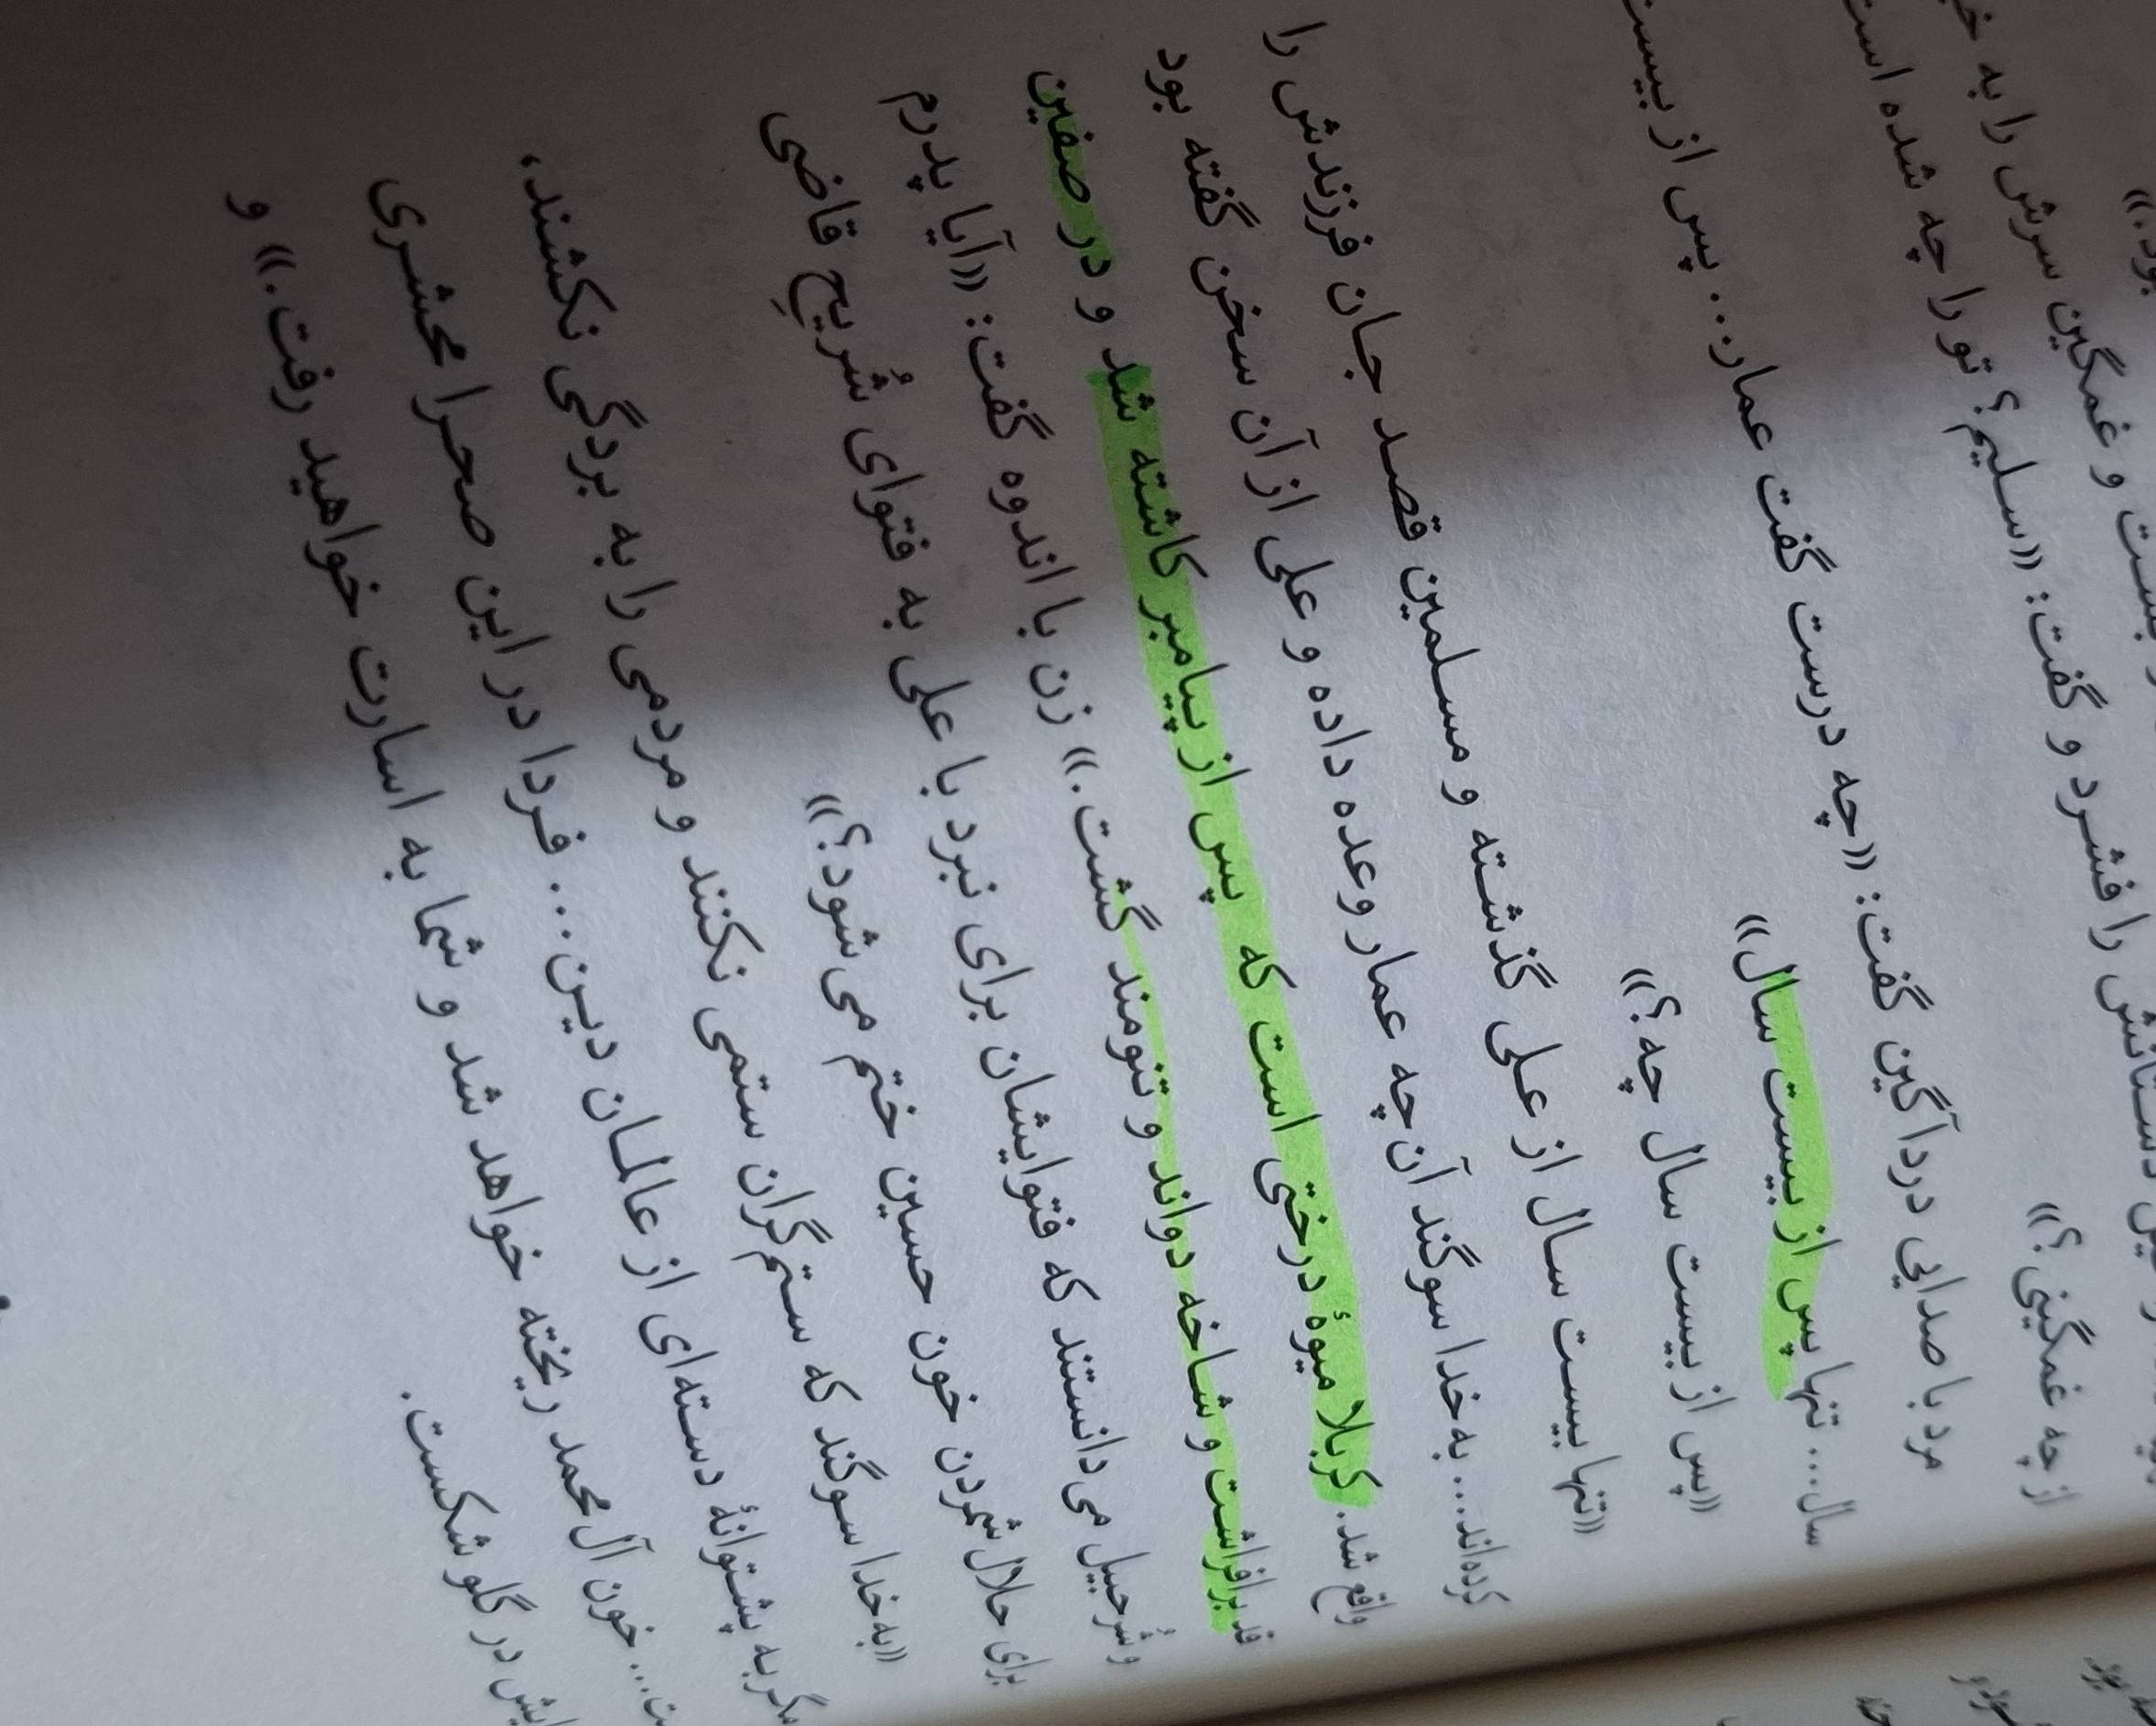 بود.»
را بست و غمگین سرش را به
دستانش را فشرد و گفت: «سلیم؟ تو را چه شده است
از چه غمگینی؟»
مرد با صدایی دردآگین گفت: «چه درست گفت عمار... پس از بیست
سال... تنها پس از بیست سال»
«پس از بیست سال چه؟»
«تنها بیست سال از علی گذشته و مسلمین قصد جان فرزندش را
کرده‌اند... به‌خدا سوگند آن‌چه عمار وعده داده و علی از آن سخن گفته بود
واقع شد. کربلا میوهٔ درختی است که پس از پیامبر کاشته شد و در صفین
قد برافراشت و شاخه دواند و تنومند گشت.» زن با اندوه گفت: «آیا پدرم
و شُرحبیل می‌دانستند که فتوایشان برای نبرد با علی به فتوای شُریحِ قاضی
برای حلال‌شمردن خون حسین ختم می‌شود؟»
«به‌خدا سوگند که ستم‌گران ستمی نکنند و مردمی را به بردگی نکشند،
مگر به پشتوانهٔ دسته‌ای از عالمان دین... فردا در این صحرا محشری
خون آل‌محمد ریخته خواهد شد و شما به اسارت خواهید رفت.» و
در گلو شکست.